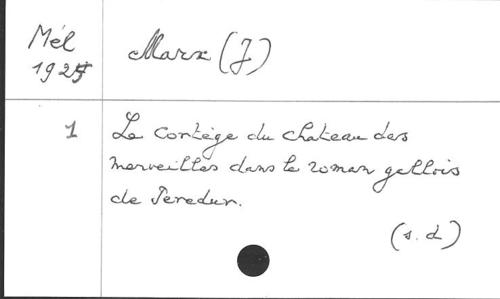 Mél
Marx (J)
1
Le cortège du chateau des
merveilles dans le roman gallois
de Peredur.
(s.d)